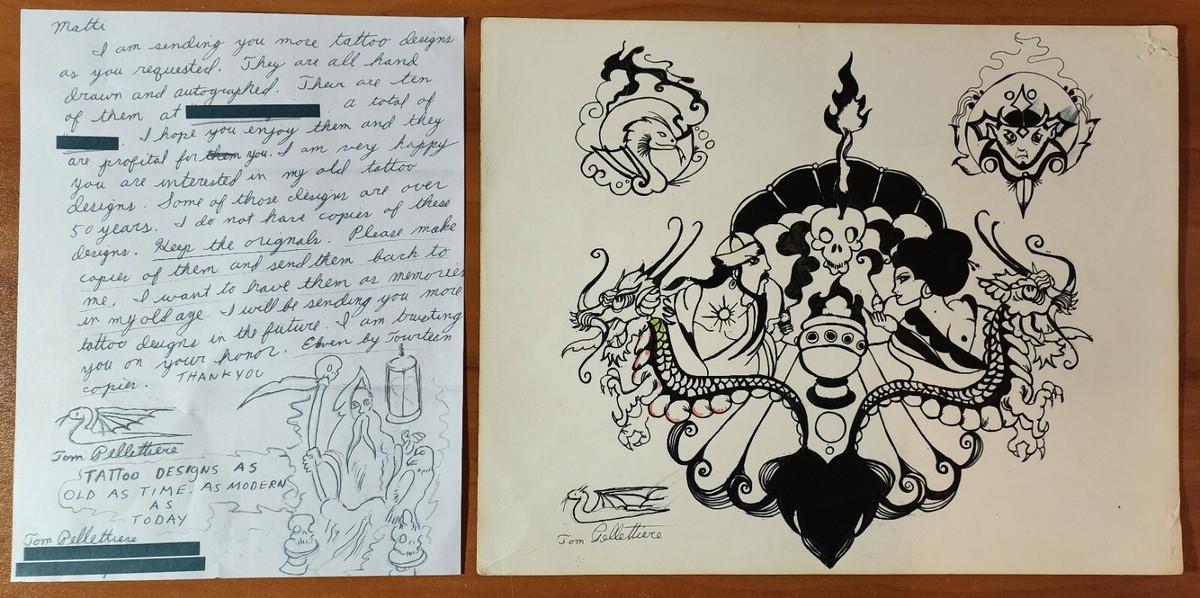 Matti
I am sending you more tattoo designs
as you requested. They are all hand
drawn and autographed. Their are ten
of them at a total of
. I hope you enjoy them and they
are profital for them you. I am very happy
you are interested in my old tattoo
designs. Some of those designs are over
50 years. I do not have copies of these
designs. Keep the orignals. Please make
copies of them and send them back to
me. I want to have them as memories
in my old age. I will be sending you more
tattoo designs in the future. I am trusting
you on your honor. Eleven by Fourteen
copies. THANK YOU
Tom Pellettiere
TATTOO DESIGNS AS
OLD AS TIME. AS MODERN
AS
TODAY
Tom Pellettiere
Tom Pellettiere